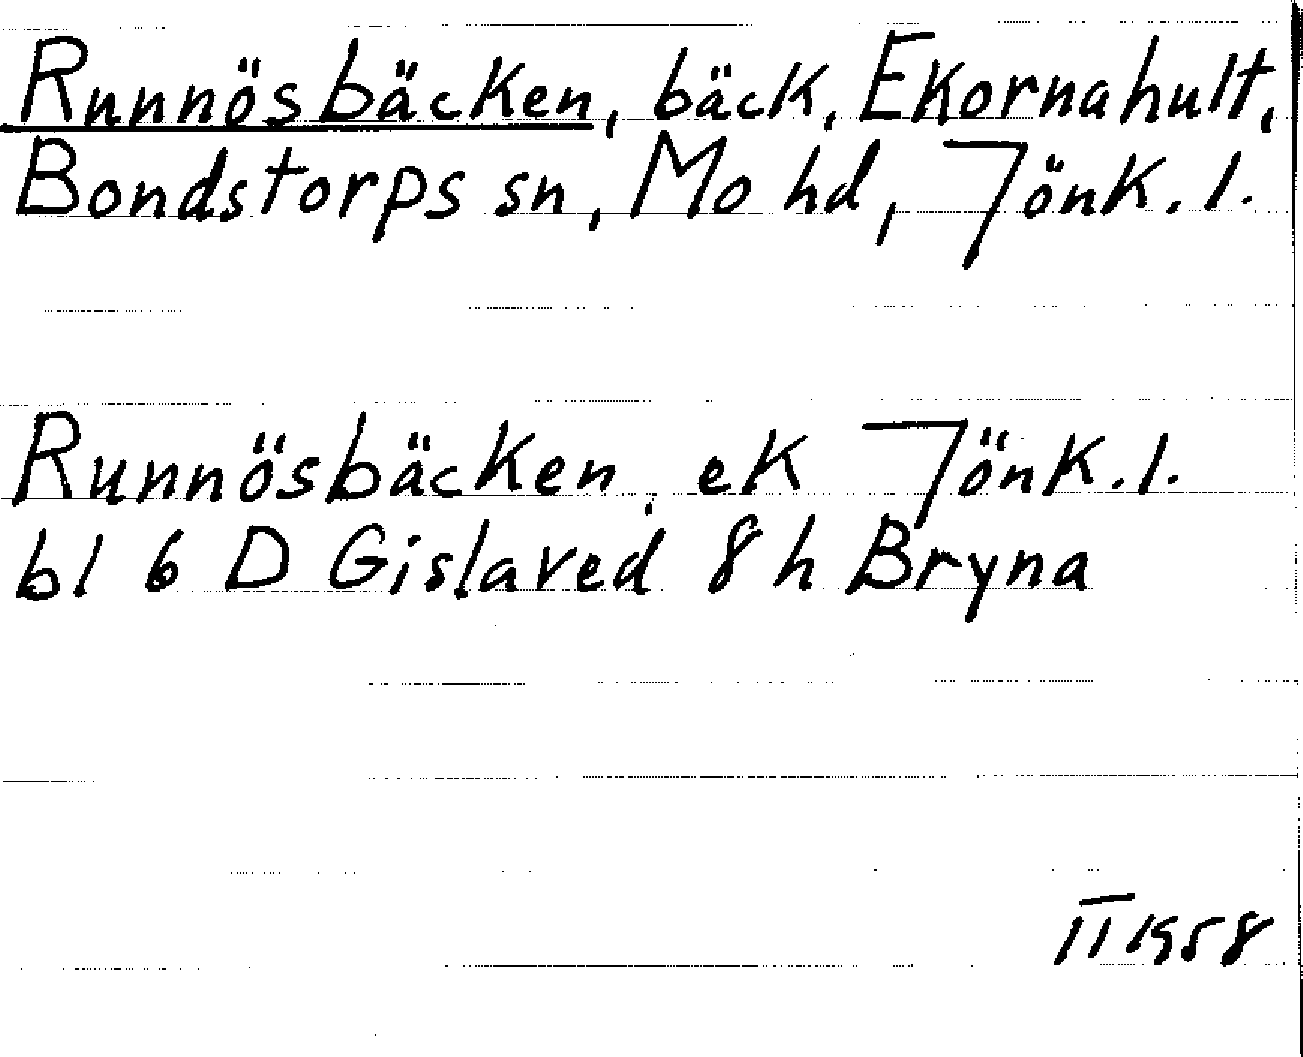 Runnösbäcken, bäck, Ekornahult,
Bondstorps sn, Mo hd, Jönk. l.
Runnösbäcken, ek Jönk. l.
bl 6 D Gislaved 8 h Bryna
II 1958